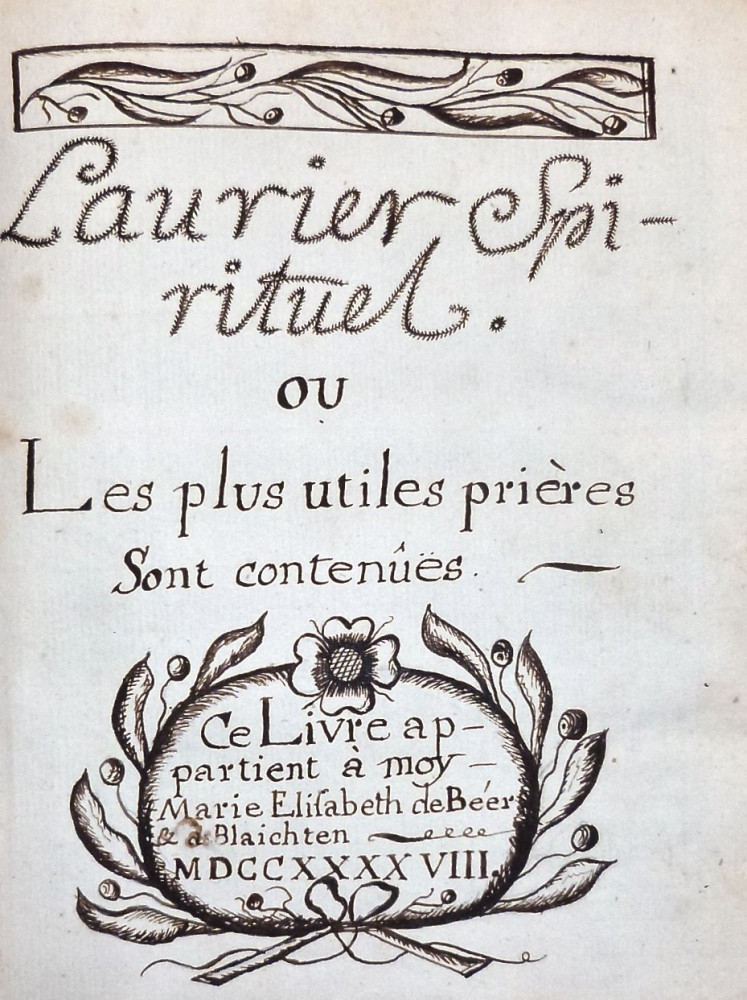 Laurier Spi-
rituel.
ou
Les plus utiles prières
Sont contenûës.
Ce Livre ap-
partient à moy
Marie Eliſabeth de Béer
& de Blaichten
MDCCXXXXVIII.